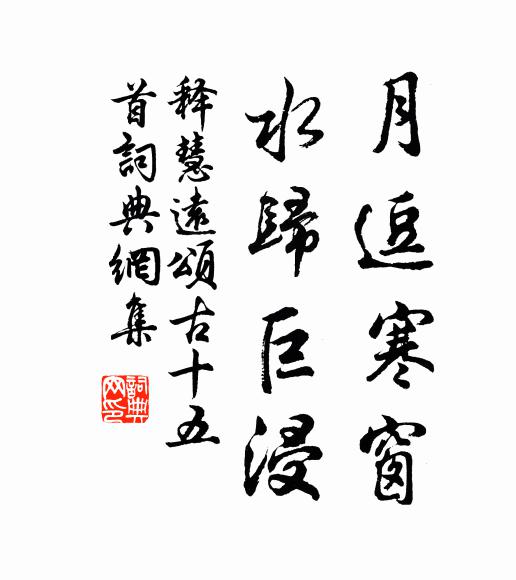 月逗寒窗
水歸巨浸
釋慧遠頌古十五
首詞典網集
詞典
网印